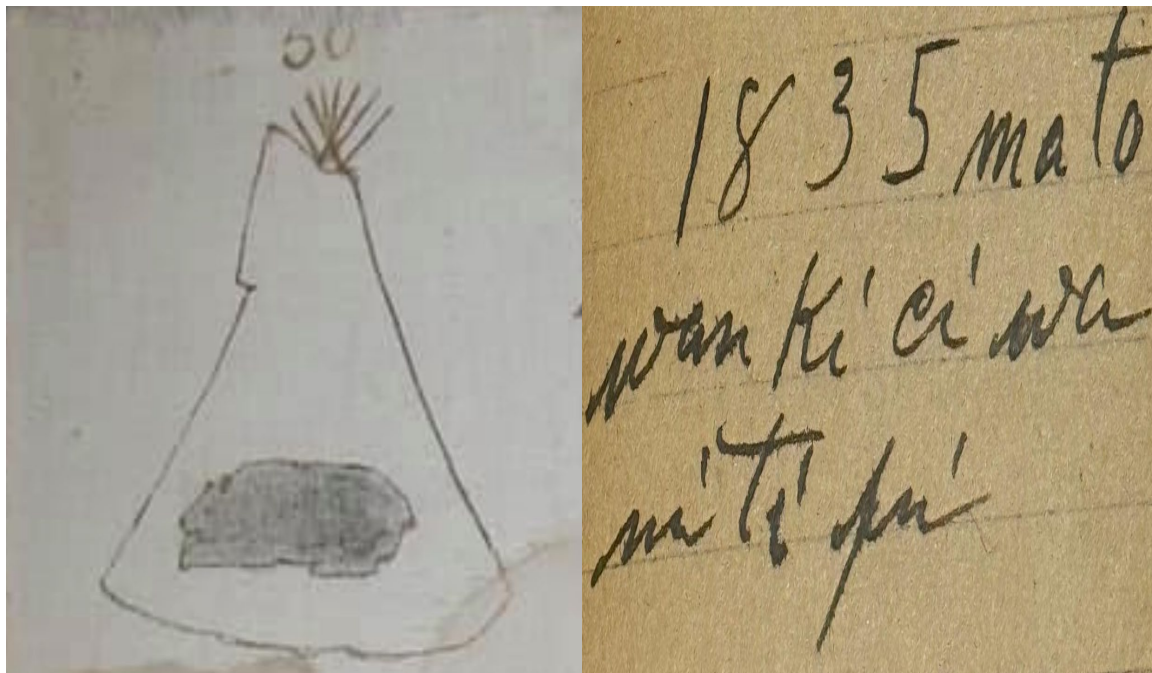 50
1835 mato
wan ki ci wa
ni ti pi